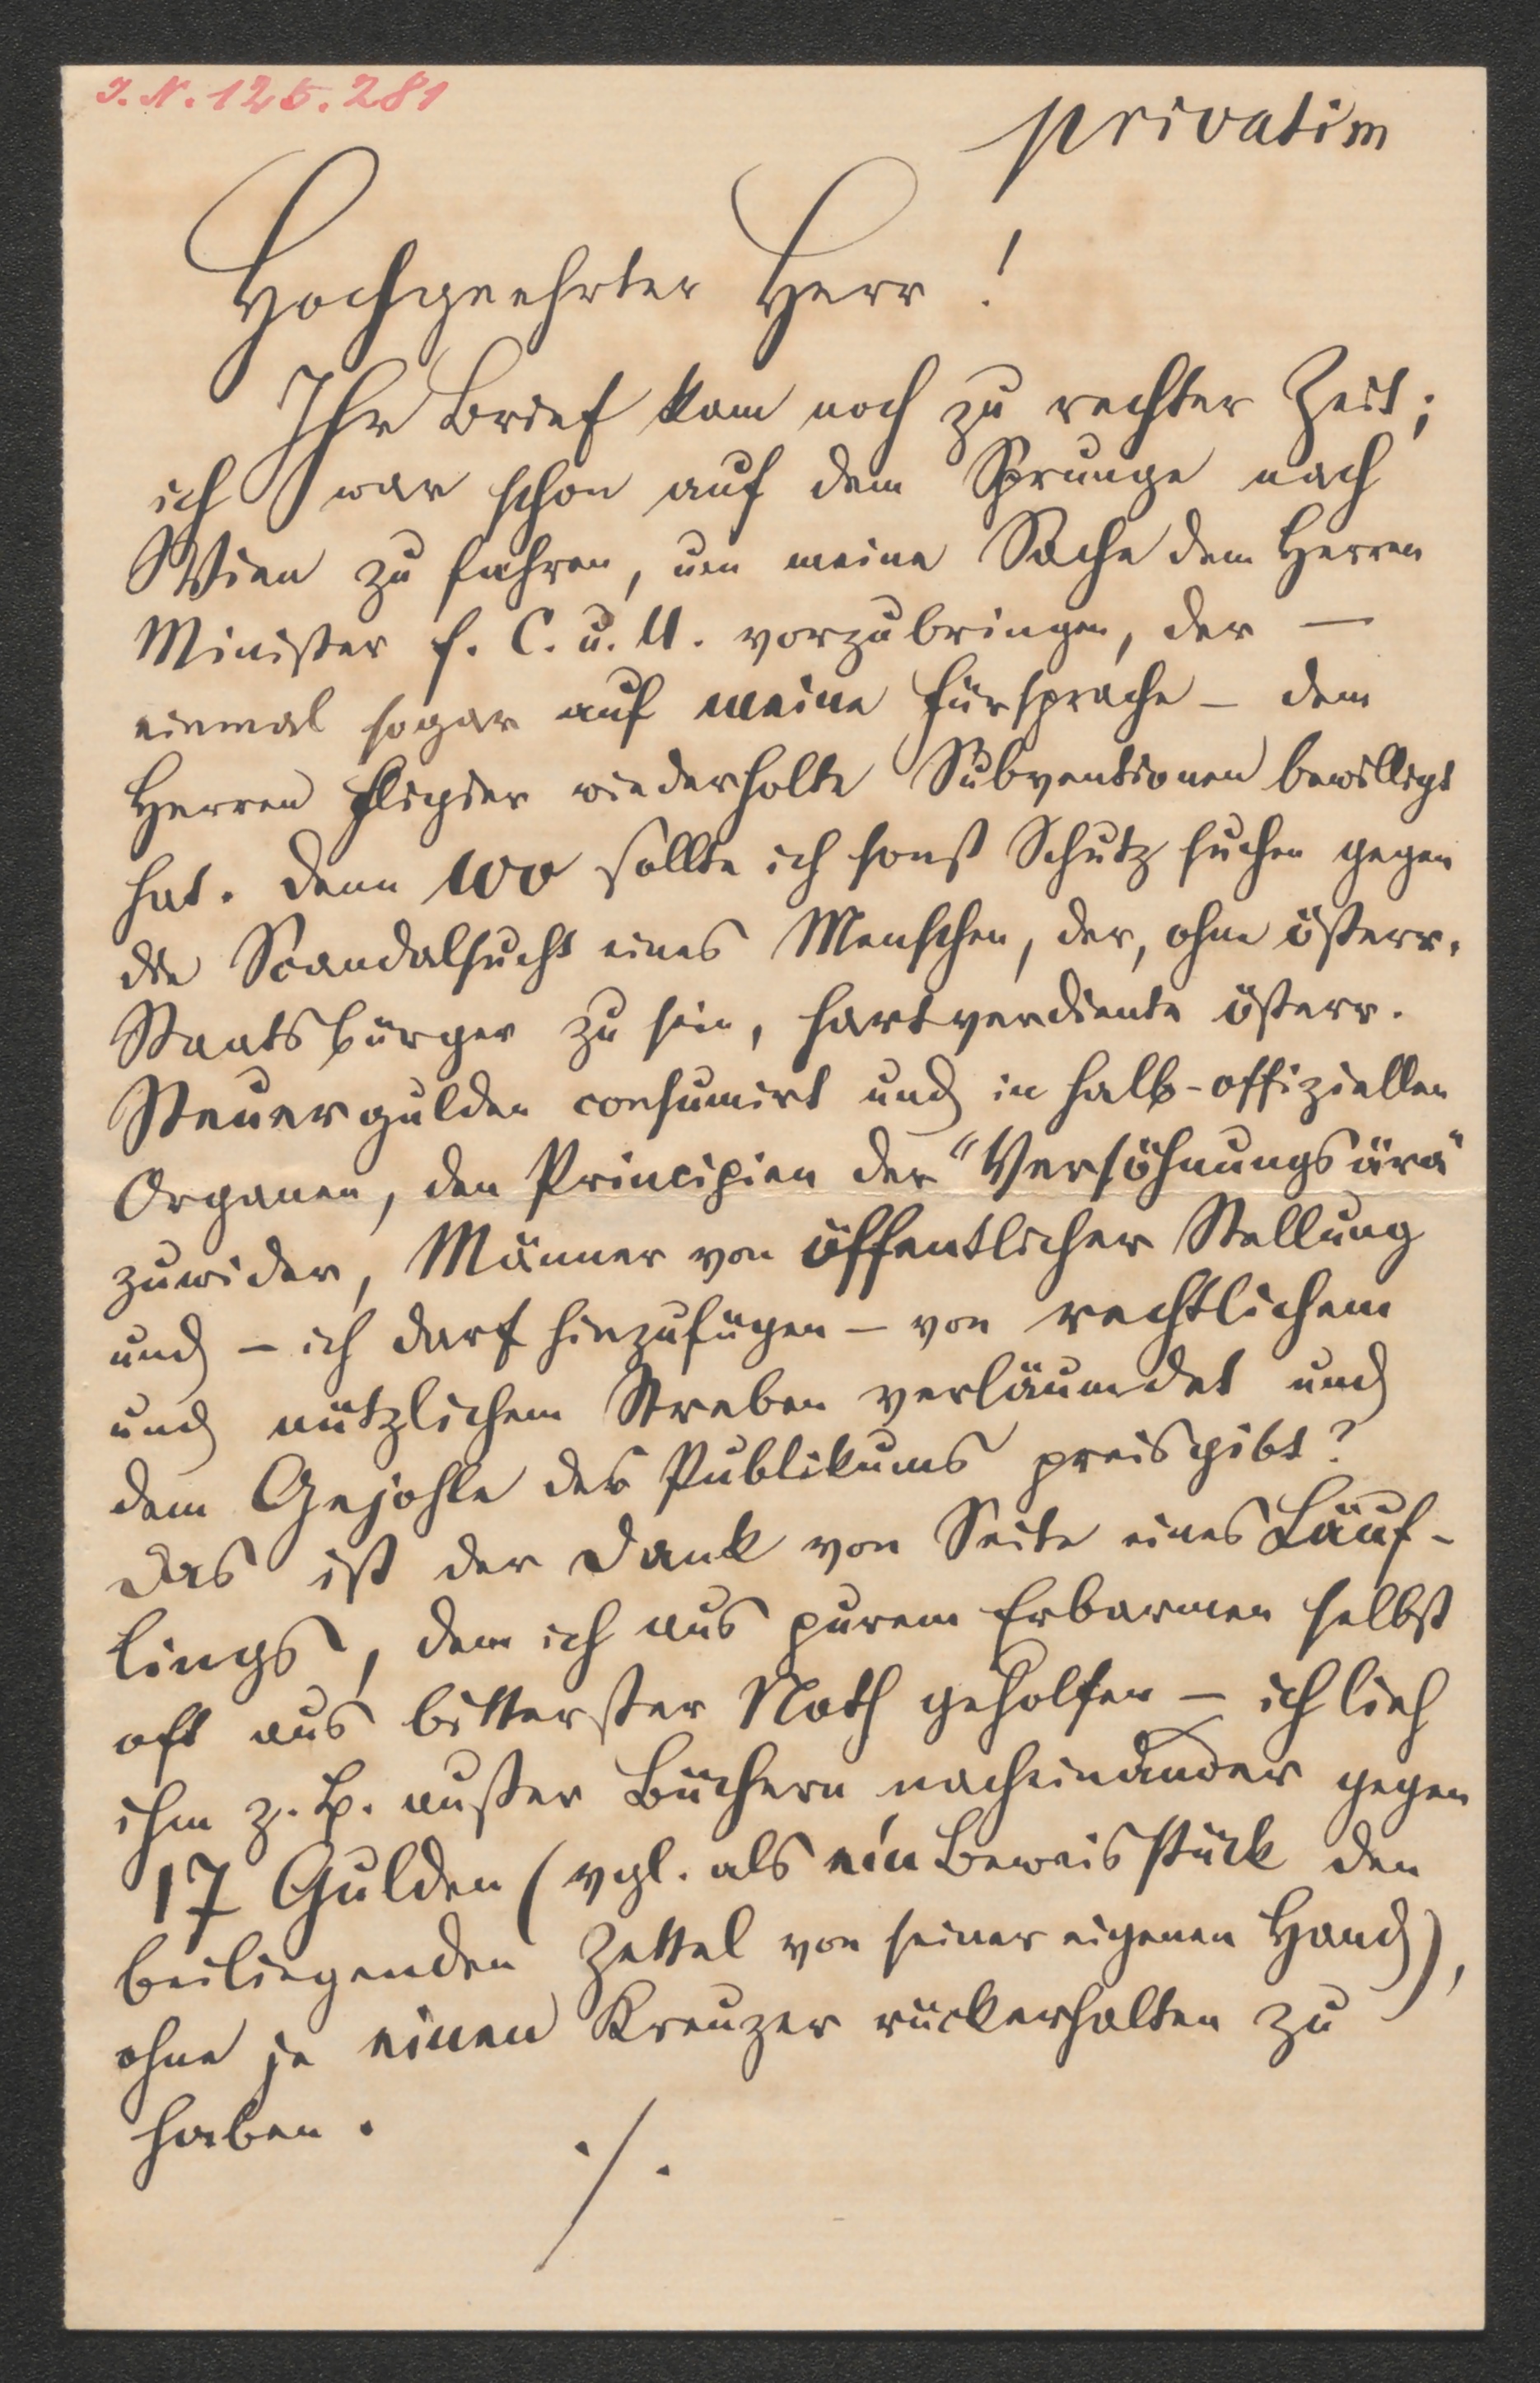 J. N. 125.281
privatim
Hochgeehrter Herr!
Ihr Brief kam noch zu rechter Zeit;
ich war schon auf dem Sprunge nach
Wien zu fahren, um meine Sache dem Herren
Minister f. C. u. U. vorzubringen, der —
einmal sogar auf meine Fürsprache – dem
Herren Fligier wiederholte Subventionen bewilligt
hat. Denn wo sollte ich sonst Schutz suchen gegen
die Scandalsucht eines Menschen, der, ohne österr.
Staatsbürger zu sein, hartverdiente österr.
Steuergulden consumirt und in halb-offiziellen
Organen, den Principien der "Versöhnungsära"
zuwider, Männer von öffentlicher Stellung
und – ich darf hinzufügen – von rechtlichem
und nützlichem Streben verläumdet und
dem Gejohle des Publikums preisgibt?
Das ist der Dank von Seite eines Läuf-
lings, dem ich aus purem Erbarmen selbst
oft aus bitterster Noth geholfen – ich lieh
ihm z. B. außer Büchern nacheinander gegen
17 Gulden (vgl. als ein Beweisstück den
beiliegenden Zettel von seiner eigenen Hand),
ohne je einen Kreuzer rückerhalten zu
haben.
./.